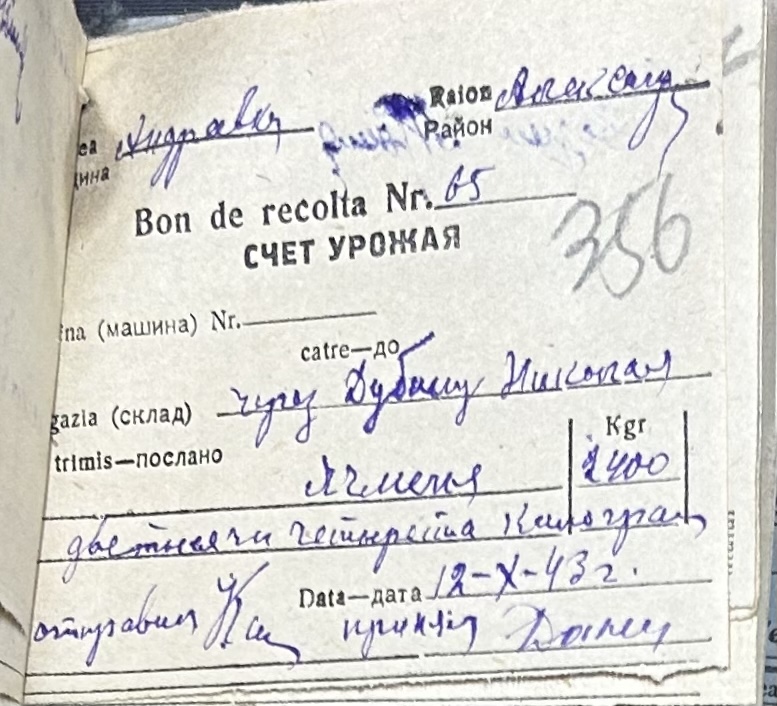 Raion Александр
ea Андреевк Район
ина
Bon de recolta Nr. 65
СЧЕТ УРОЖАЯ
356
ina (машина) Nr.
catre—до
gazia (склад) через Дубину Николая
trimis—послано
Kgr
Ячменя 2400
две тысячи четыреста килограм
Data—дата 12-X-43 г.
отправил принял